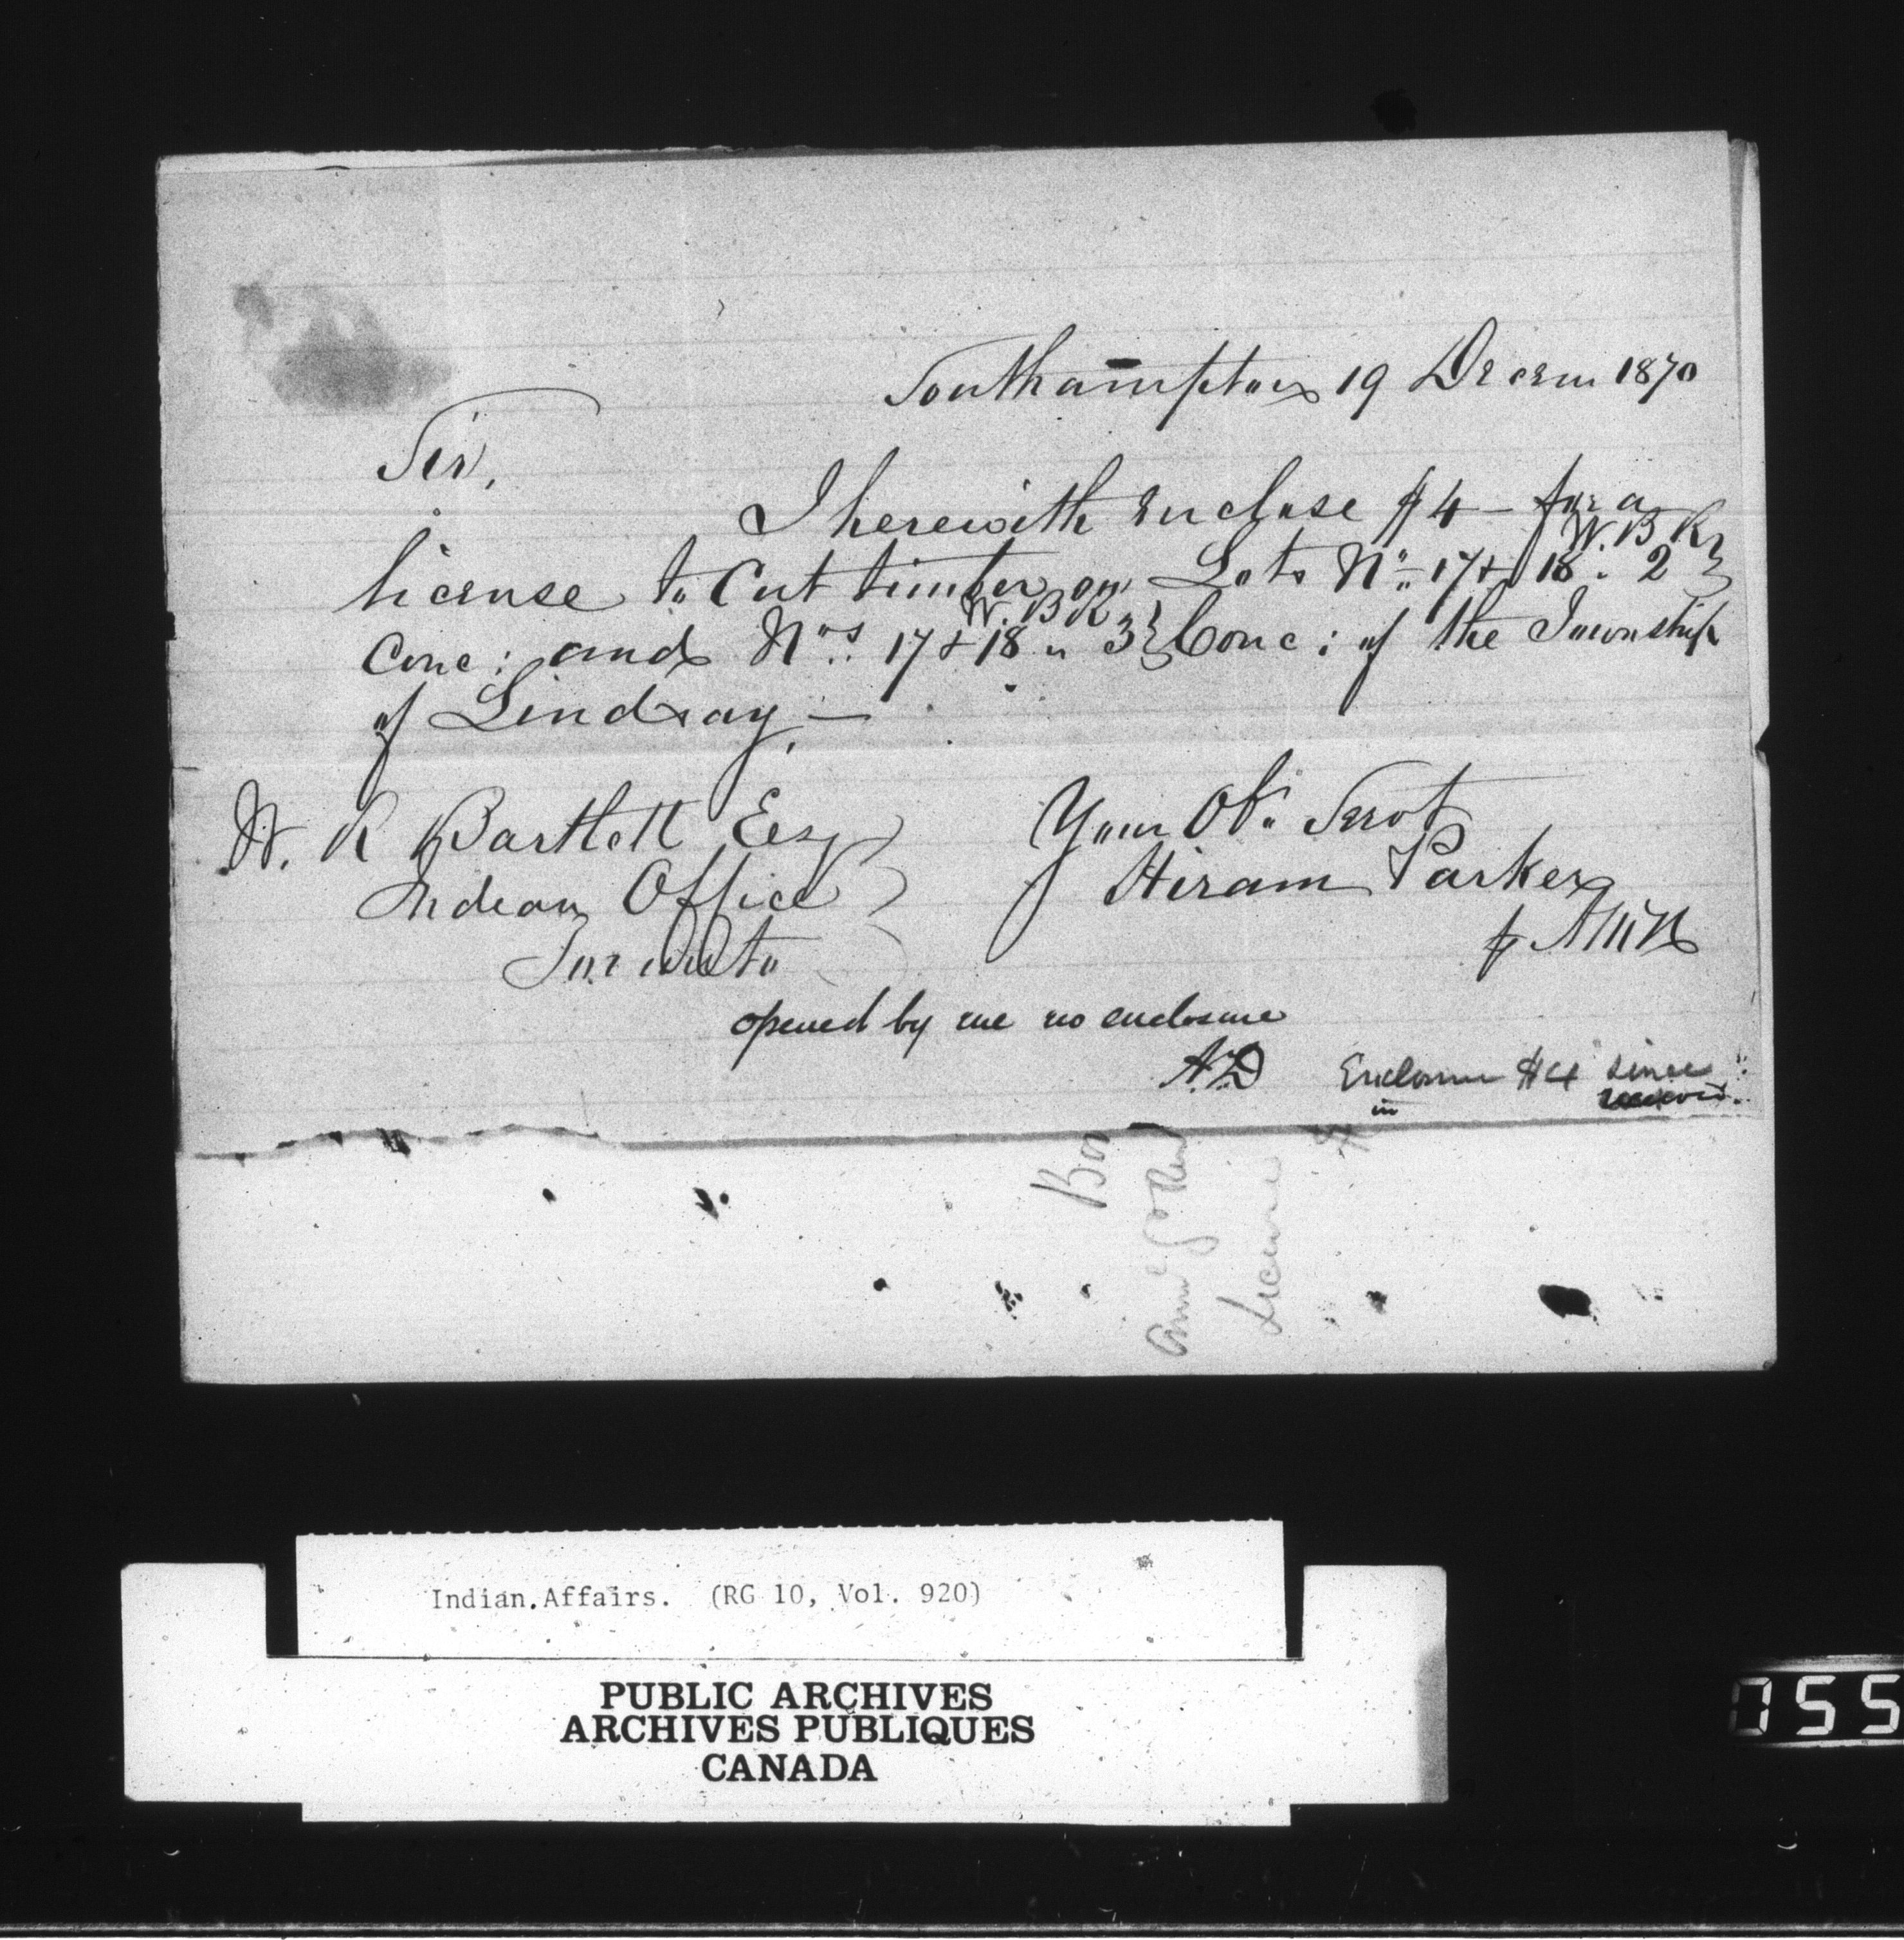 Southampton 19 Decem 1870
Sir,
I herewith enclose $4 – for a
W. B R
license to Cut timber on Lots No. 17 & 18 " 2
W. B R
Conc: and Nos. 17 & 18 " 3 Conc: of the Township
of Lindsay —
W. R Bartlett Esq
Indian Office
Toronto
Your Obt. Servt
Hiram Parker
opened by me no enclosure
A.D
Enclosure $4 since
in
received.
License
Indian Affairs. (RG 10, Vol. 920)
PUBLIC ARCHIVES
ARCHIVES PUBLIQUES
CANADA
755